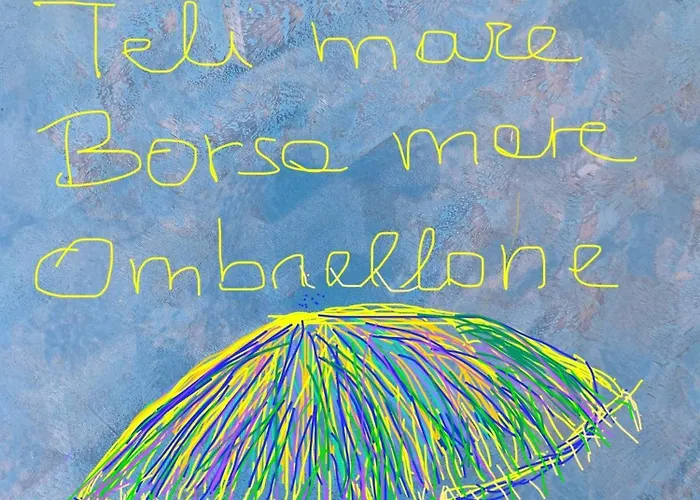 Teli mare
Borsa mare
Ombrellone